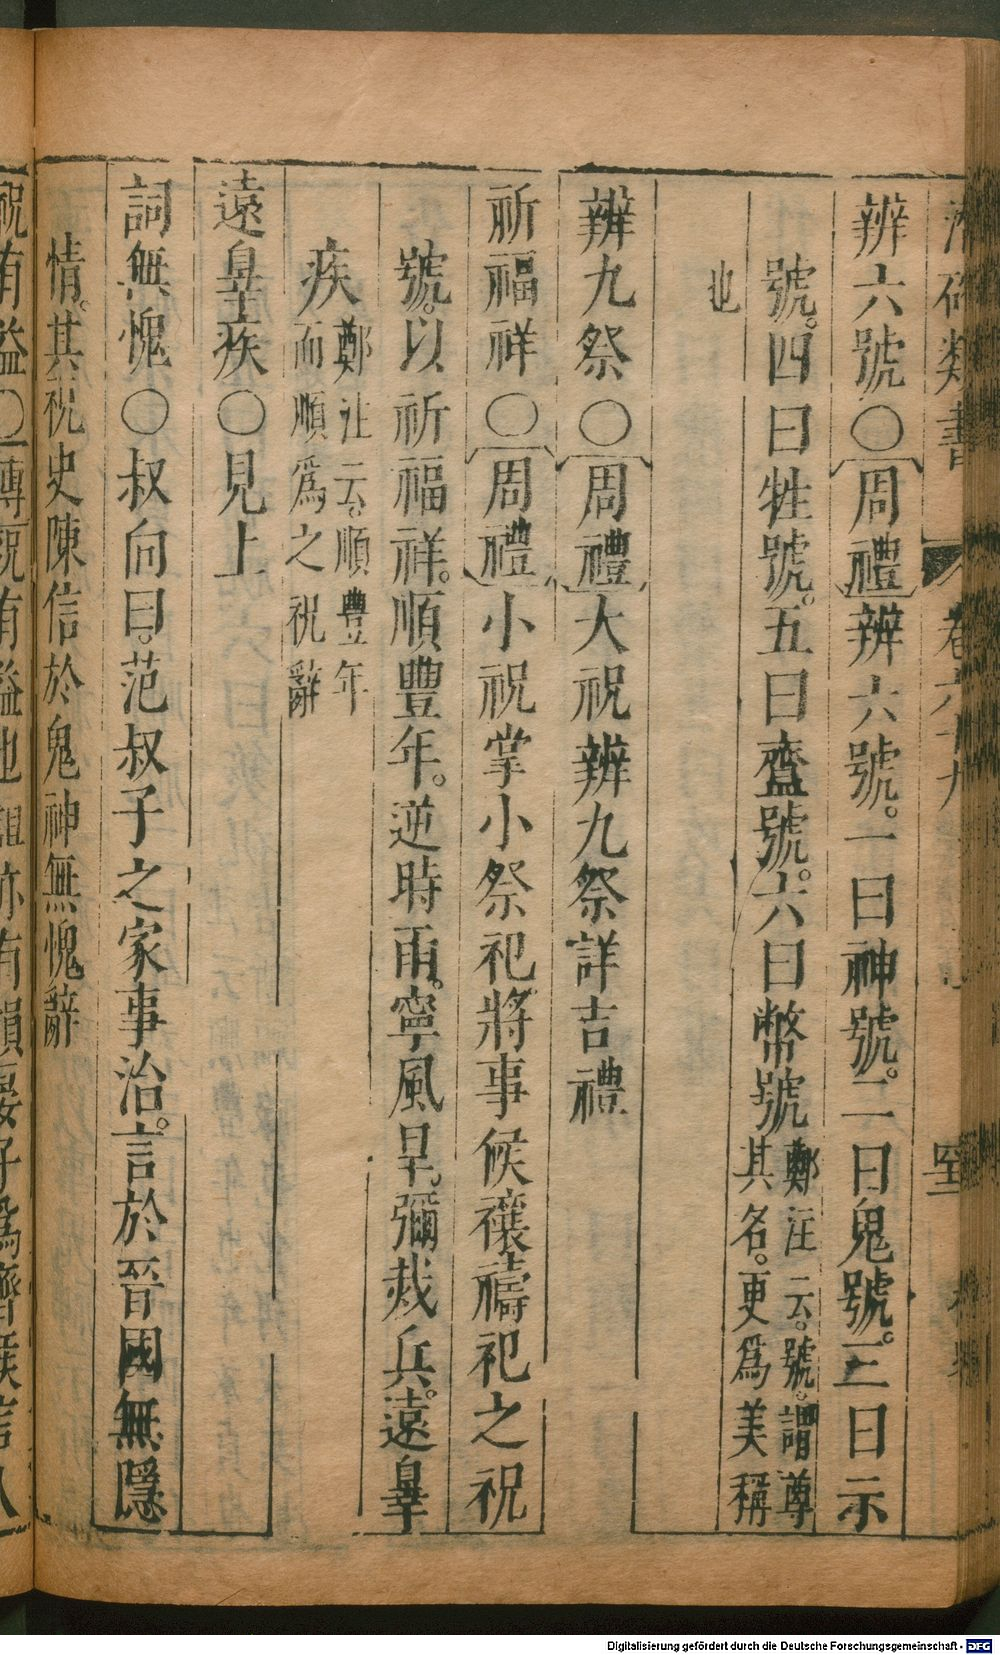 類書 卷六十九
辨六號〇周禮辨六號。一曰神號。二曰鬼號。三曰示
號。四曰牲號。五曰齍號。六曰幣號鄭注云。號。謂尊其名。更爲美稱
也
辨九祭〇周禮大祝辨九祭詳吉禮
祈福祥〇周禮小祝掌小祭祀將事候禳禱祀之祝
號。以祈福祥。順豐年。逆時雨。寧風旱。彌烖兵。遠辠
疾鄭注云。順豐年而順爲之祝辭
遠辠疾〇見上
詞無愧〇叔向曰。范叔子之家事治。言於晉國無隱
情。其祝史陳信於鬼神無愧辭
祝有益〇傳祝有益也詛亦有損晏子爲齊侯言
Digitalisierung gefördert durch die Deutsche Forschungsgemeinschaft - DFG